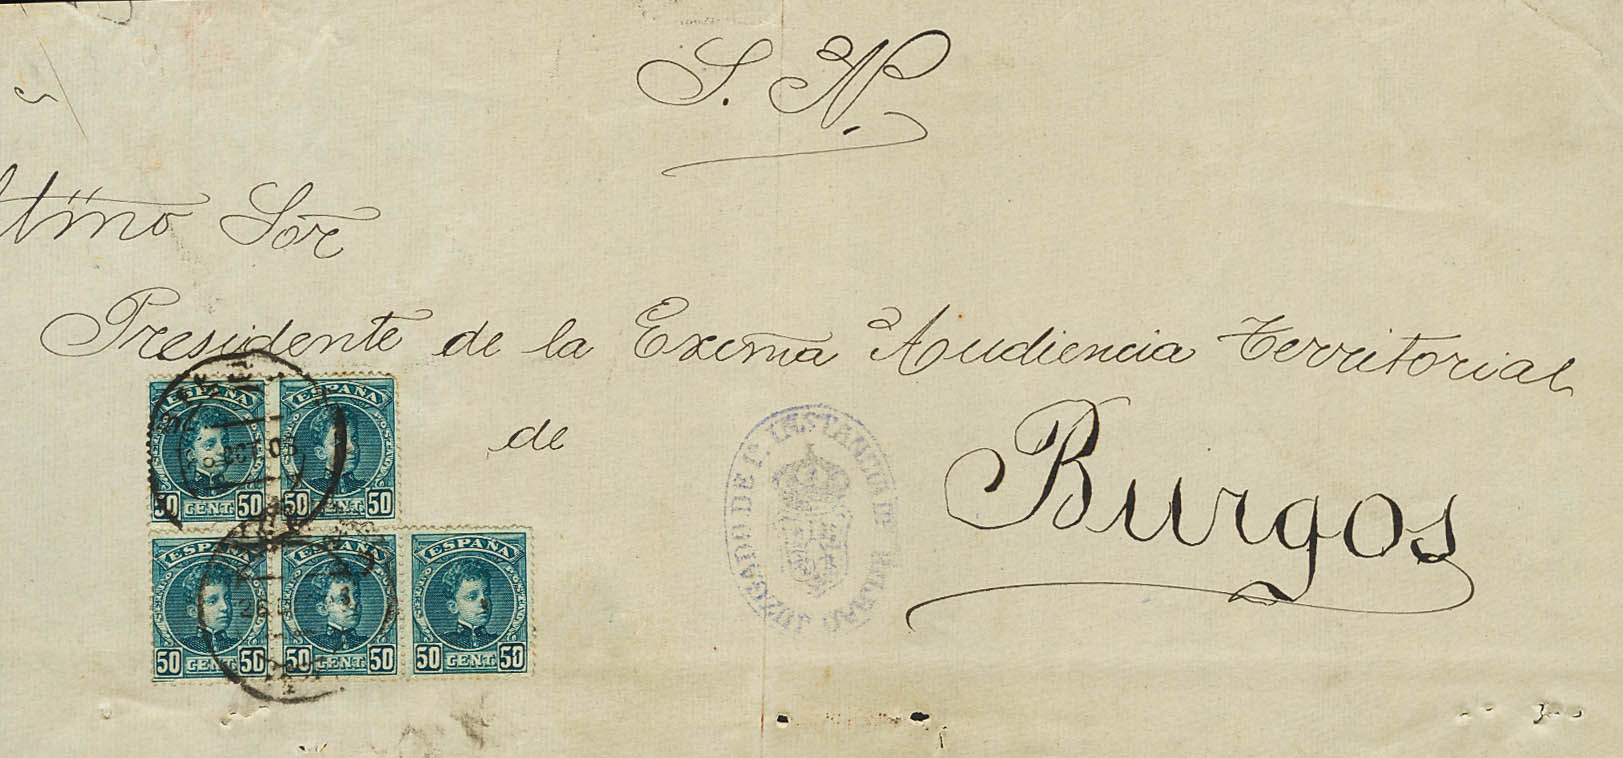 S. N.
Iltmo Sor
Presidente de la Excma Audiencia Territorial
de
Burgos
JUZGADO DE 1ª INSTANCIA DE BILBAO
ESPAÑA ESPAÑA
50 CENT. 50 50 CENT. 50
ESPAÑA ESPAÑA ESPAÑA
50 CENT. 50 50 CENT. 50 50 CENT. 50